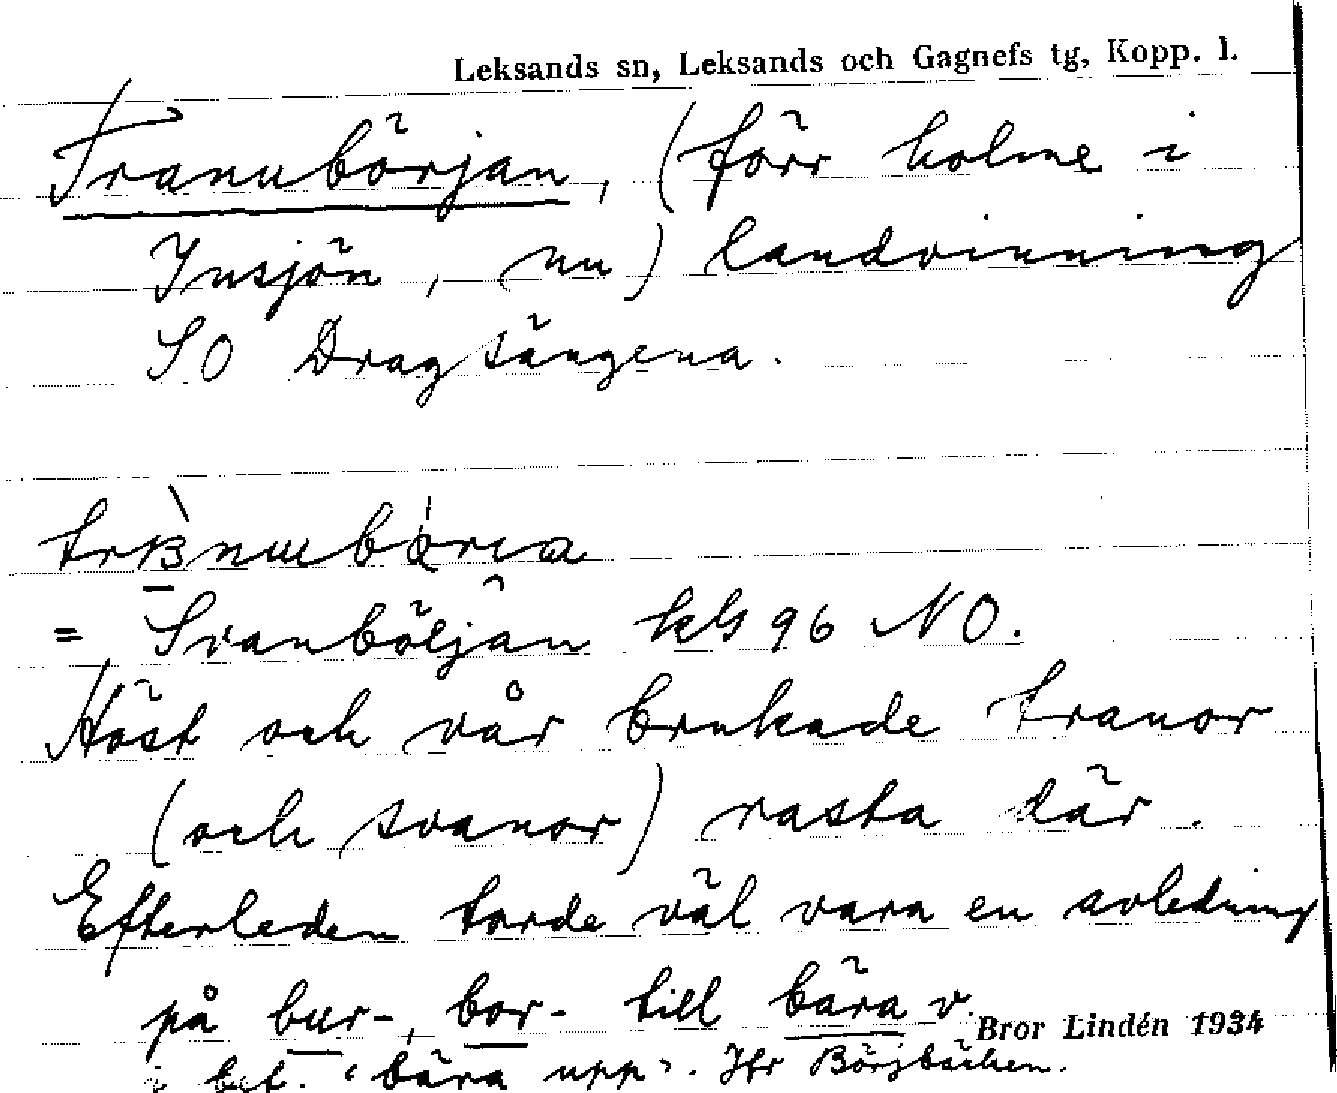 Leksands sn, Leksands och Gagnefs tg, Kopp. l.
Tranubörjan, (förr holme i
Insjön, nu) landvinning
SO Dragsängena.
= Svanböljan kbl 96 NO.
Höst och vår brukade tranor
(och svanor) rasta där.
Efterleden torde väl vara en avledning
på bur-, bor- till bära v.
Bror Lindén 1934
i bet. 'bära upp'. Jfr Börjbäcken.